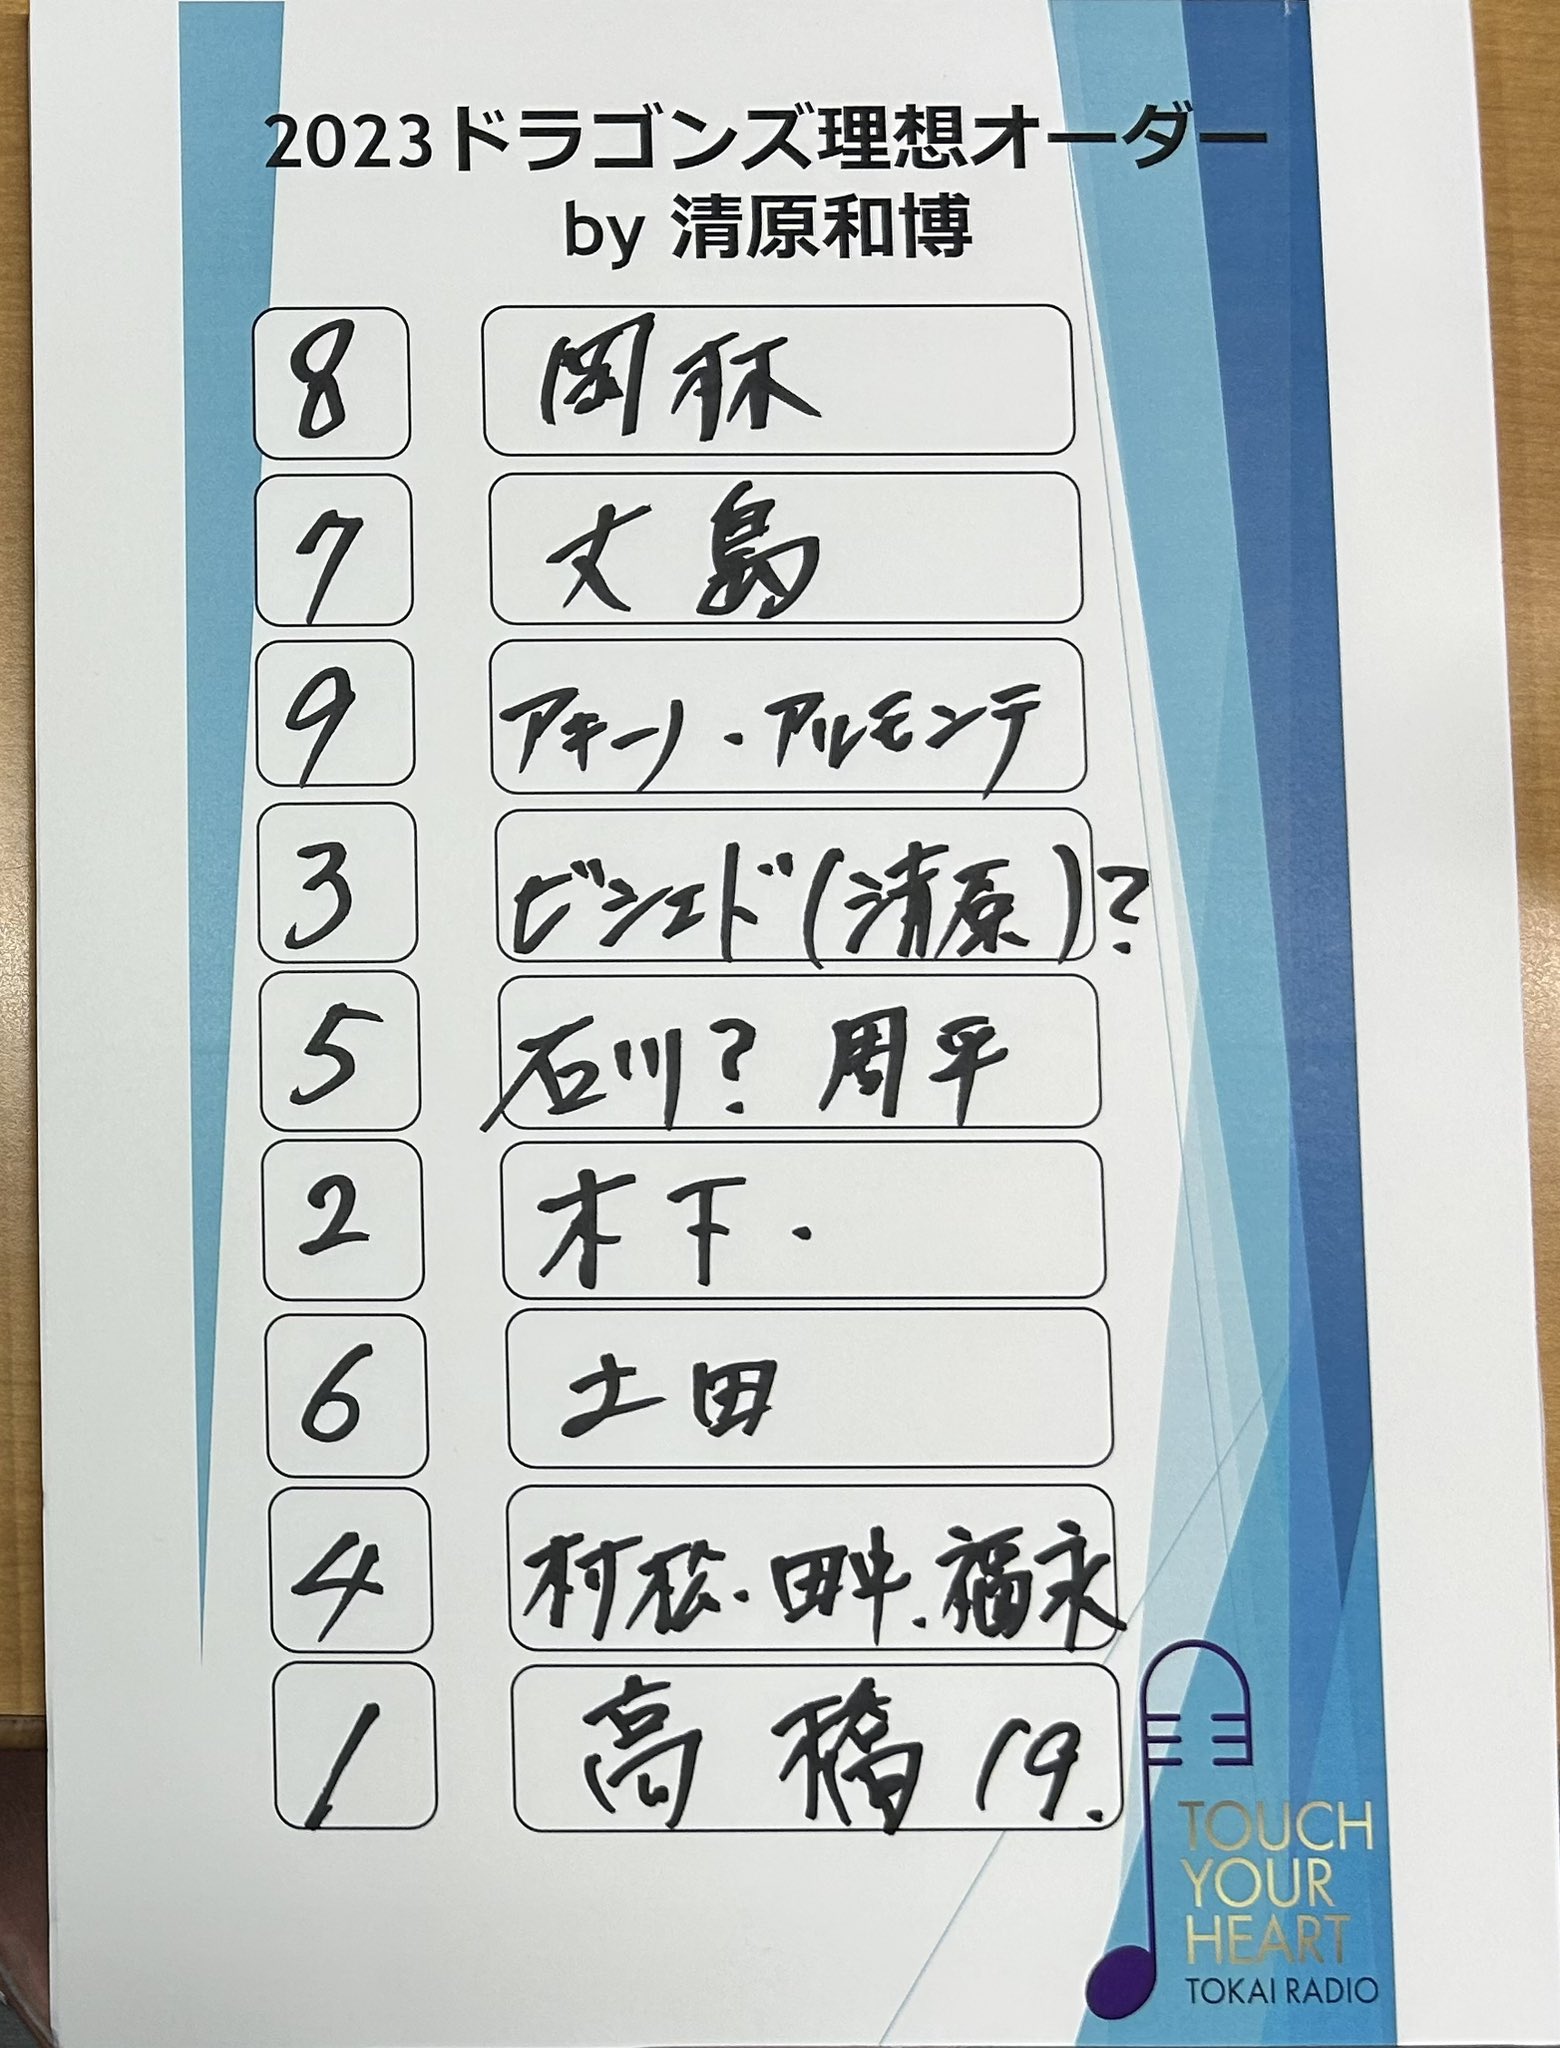 2023ドラゴンズ理想オーダー
by 清原和博
8 岡林
7 大島
9 アキーノ・アルモンテ
3 ビシェド(清原)?
5 石川? 周平
2 木下.
6 土田
4 村松.田中.福永
1 高橋19.
TOUCH
YOUR
HEART
TOKAI RADIO